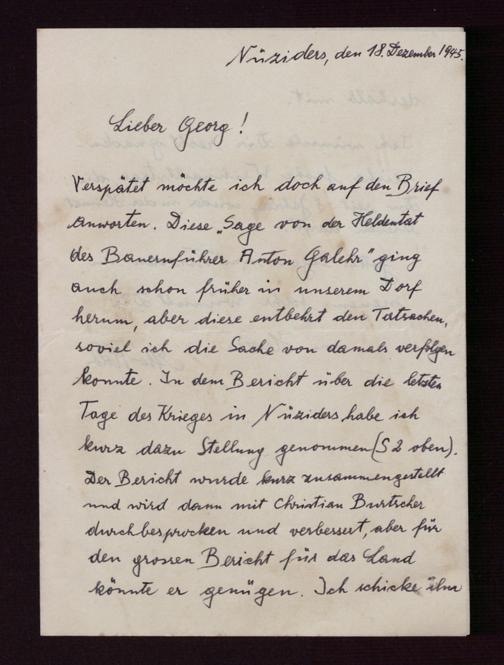 Nüziders, den 18. Dezember 1945.
Lieber Georg!
Verspätet möchte ich doch auf den Brief
Anworten. Diese „Sage von der Heldentat
des Bauernführer Anton Galehr" ging
auch schon früher in unserem Dorf
herum, aber diese entbehrt den Tatsachen,
soviel ich die Sache von damals verfolgen
konnte. In dem Bericht über die letzten
Tage des Krieges in Nüziders, habe ich
kurz dazu Stellung genommen (S 2 oben).
Der Bericht wurde kurz zusammengestellt
und wird dann mit Christian Burtscher
durchbesprocken und verbessert, aber für
den grossen Bericht für das Land
könnte er genügen. Ich schicke ihn